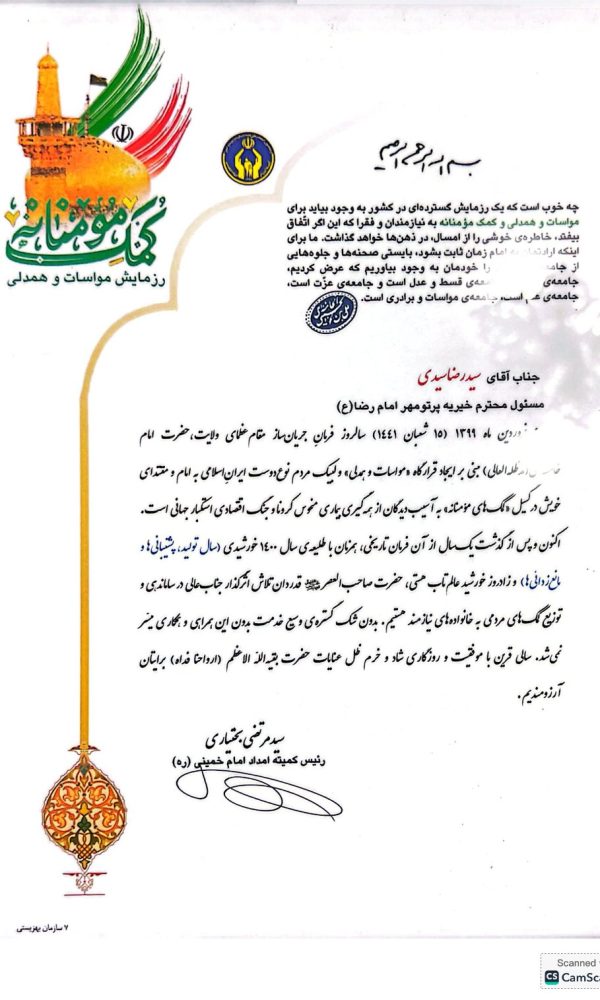 بسم الله الرحمن الرحیم
کمک مؤمنانه
رزمایش مواسات و همدلی
چه خوب است که یک رزمایش گسترده‌ای در کشور به وجود بیاید برای
مواسات و همدلی و کمک مؤمنانه به نیازمندان و فقرا که این اگر اتّفاق
بیفتد، خاطره‌ی خوشی را از امسال، در ذهن‌ها خواهد گذاشت. ما برای
اینکه ارادتمان به امام زمان ثابت بشود، بایستی صحنه‌ها و جلوه‌هایی
از را خودمان به وجود بیاوریم که عرض کردیم،
جامعه‌ی ه‌ی قسط و عدل است و جامعه‌ی عزّت است،
جامعه‌ی است، جامعه‌ی مواسات و برادری است.
جناب آقای سیدرضا سیدی
مسئول محترم خیریه پرتومهر امام رضا(ع)
ماه ۱۳۹۹ (۱۵ شعبان ۱۴۴۱) سالروز فرمان جریان‌ساز مقام عظمای ولایت، حضرت امام
العالی) مبنی بر ایجاد قرارگاه «مواسات و همدلی» و لبیک مردم نوع‌دوست ایران اسلامی به امام و مقتدای
خویش در گسیل «کمک‌های مؤمنانه» به آسیب‌دیدگان از همه‌گیری بیماری منحوس کرونا و جنگ اقتصادی استکبار جهانی است.
اکنون و پس از گذشت یک سال از آن فرمان تاریخی، همزمان با طلیعه‌ی سال ۱۴۰۰ خورشیدی (سال تولید، پشتیبانی‌ها و
مانع‌زدائی‌ها) و زادروز خورشید عالم‌تاب هستی، حضرت صاحب‌العصر قدردان تلاش اثرگذار جنابعالی در ساماندهی و
توزیع کمک‌های مردمی به خانواده‌های نیازمند هستیم. بدون شک گستره‌ی وسیع خدمت بدون این همراهی و همکاری میسّر
نمی‌شد. سالی قرین با موفقیت و روزگاری شاد و خرم ظل عنایات حضرت بقیه‌الله الاعظم (ارواحنا فداه) برایتان
آرزومندیم.
سید مرتضی بختیاری
رئیس کمیته امداد امام خمینی (ره)
۷ سازمان بهزیستی
Scanned
CS CamSc